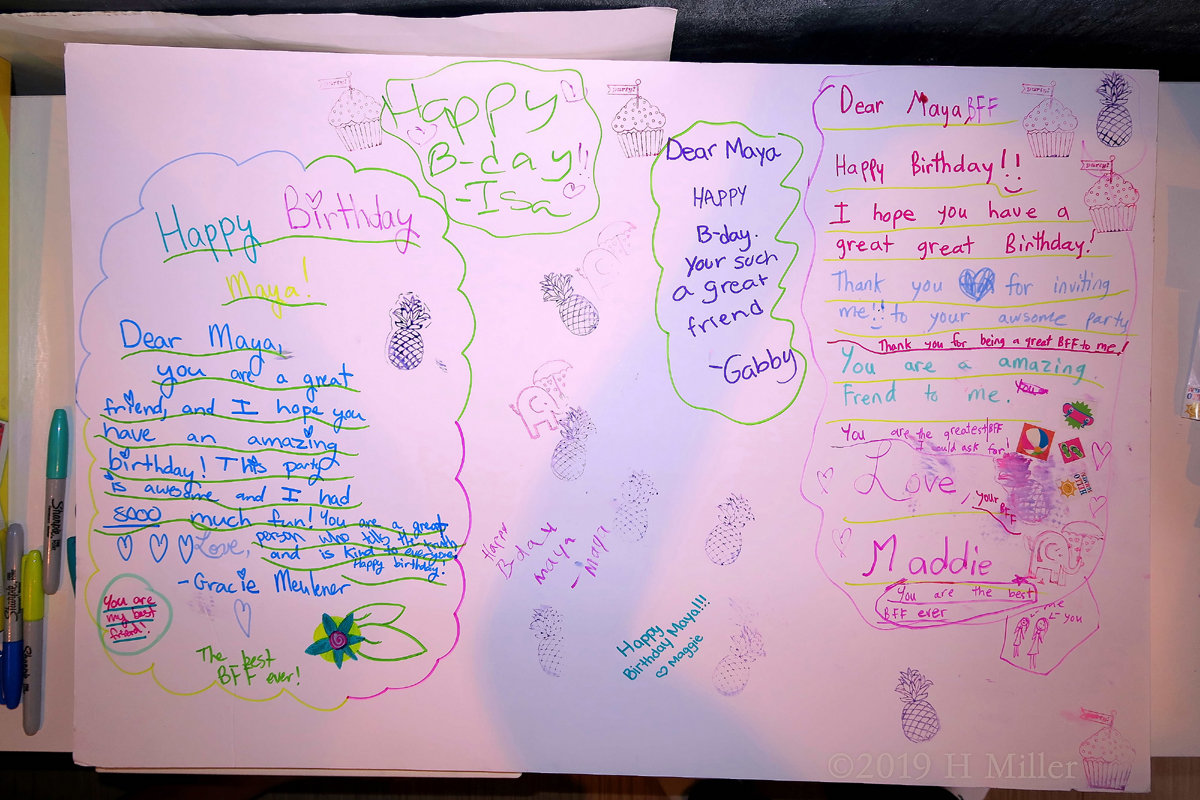 Happy Birthday
Maya!
Dear Maya,
you are a great
friend, and I hope you
have an amazing
birthday! This party
is awesome and I had
8000 much fun! You are a great
person who tells the truth
and is kind to everyone!
Happy birthday!
Love,
-Gracie Meulener
You are
my best
friend!
The best
BFF ever!
Happy
B-day!!
-Isa
party!
party!
Dear Maya
HAPPY
B-day.
your such
a great
friend
-Gabby
Happy
B-day
Maya
-Maya
Happy
Birthday Maya!!!
Maggie
Dear Maya BFF
party!
Happy Birthday!!
party!
I hope you have a
great great Birthday!
Thank you for inviting
me!! to your awsome party
Thank you for being a great BFF to me!
You are a amazing.
Frend to me.
You are the greatest BFF
I could ask for!
Love,
your
BFF
Maddie
You are the best
BFF ever
me
you
party!
Sharpie
Sharpie
©2019 H Miller